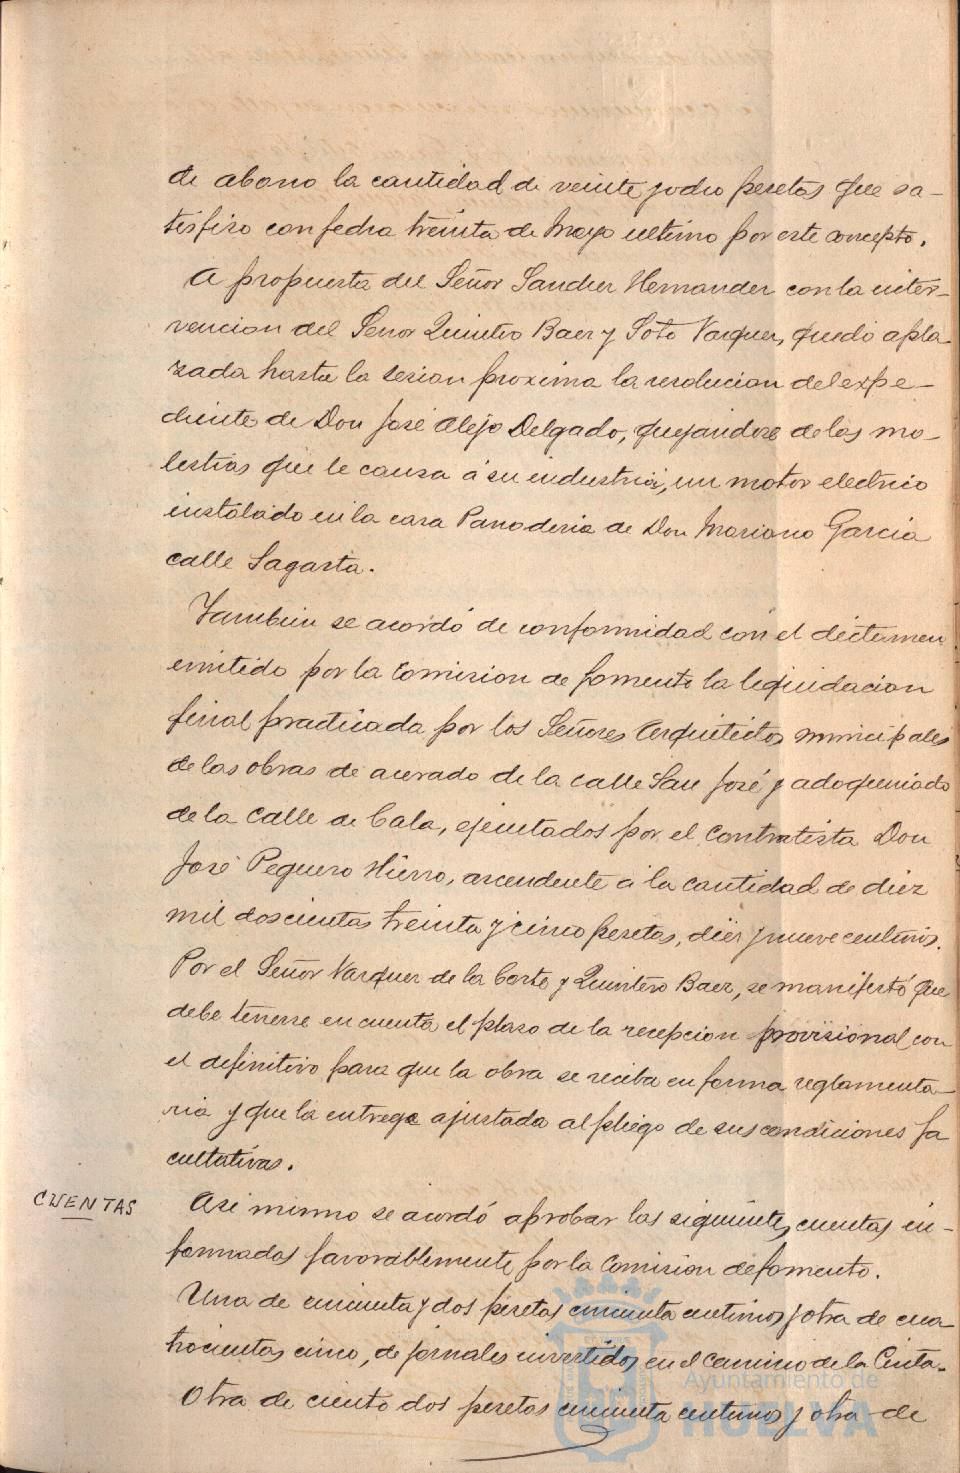 de abono la cantidad de veinte y ocho pesetas que sa-
tisfizo con fecha treinta de Mayo ultimo por este concepto.
A propuesta del Señor Sanchez Hernandez con la inter-
vencion del Señor Quintero Baez y Soto Vazquez, quedó apla-
zada hasta la sesion proxima la resolucion del expe-
diente de Don José Alejo Delgado, quejandose de las mo-
lestias que le causa á su industria, un motor electrico
instalado en la casa Panaderia de Don Mariano Garcia
calle Sagasta.
Tambien se acordó de conformidad con el dictamen
emitido por la Comision de fomento la liquidacion
final practicada por los Señores Arquitectos municipales
de las obras de acerado de la calle San José y adoquinado
de la Calle de Cala, ejecutados por el Contratista Don
José Peguero Hierro, ascendente á la cantidad de diez
mil doscientas treinta y cinco pesetas, diez y nueve centimos.
Por el Señor Vazquez de la Corte y Quintero Baez, se manifestó que
debe tenerse en cuenta el plaso de la recepcion provisional con
el definitivo para que la obra se reciba en forma reglamenta-
ria y que la entrega ajustada al pliego de sus condiciones fa
cultativas.
CUENTAS
Asi mismo se acordó aprobar las siguientes cuentas in-
formadas favorablemente por la Comision de fomento.
Una de cincuenta y dos pesetas cincuenta centimos y otra de cua-
trocientas cinco, de jornales invertidos en el Camino de la Cinta.
Otra de ciento dos pesetas cincuenta centimos y otra de
Ayuntamiento de
HUELVA